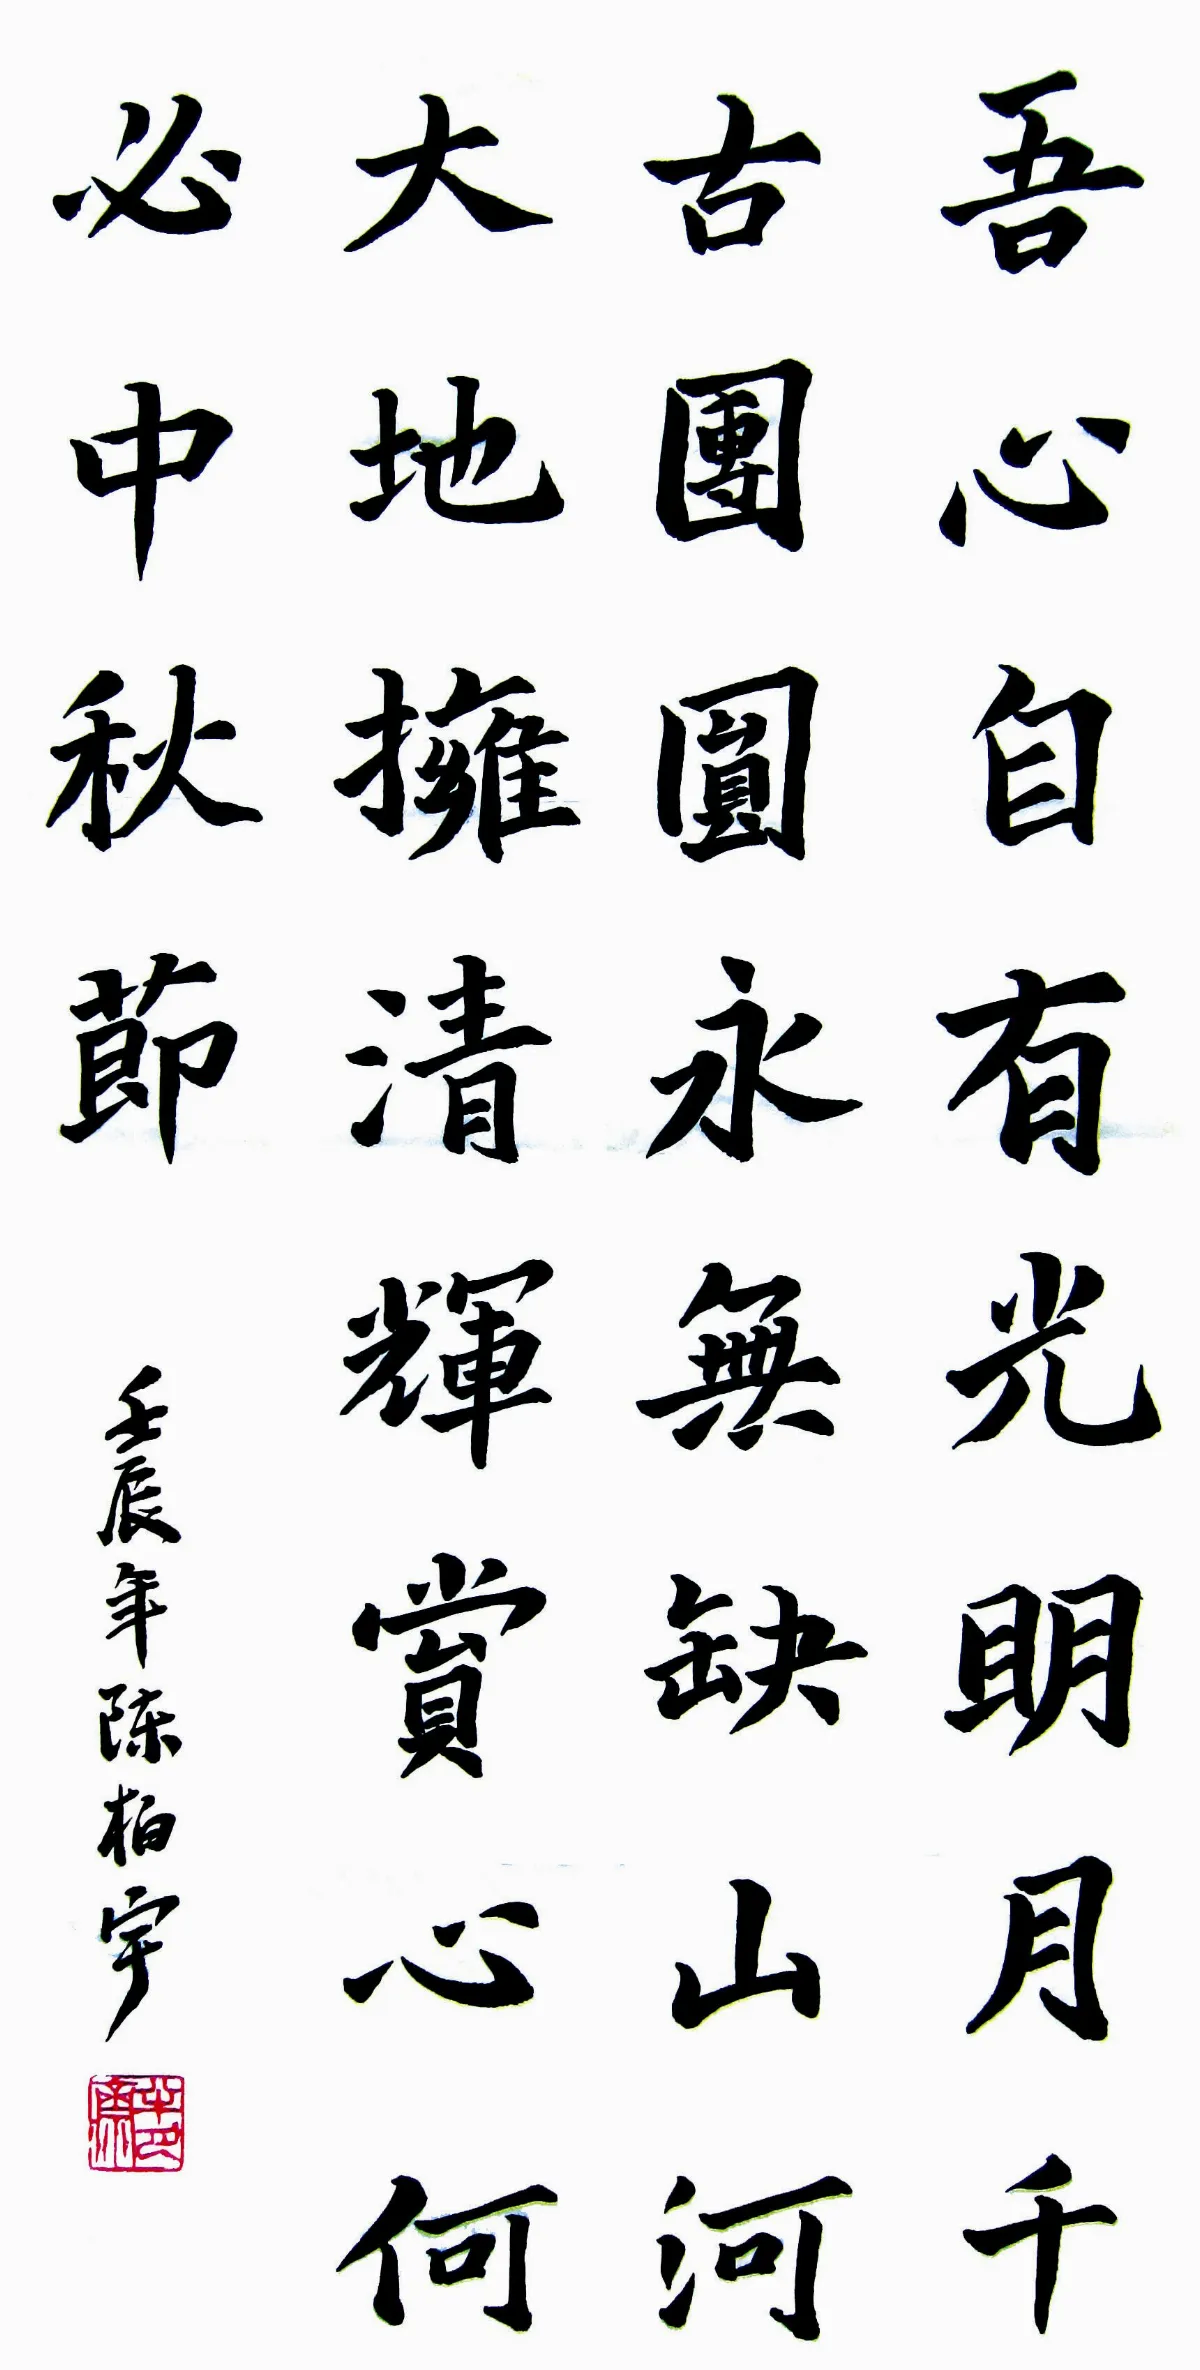 吾心自有光明月千
古團圓永無缺山河
大地擁清輝賞心何
必中秋節
壬辰年陈柏宇